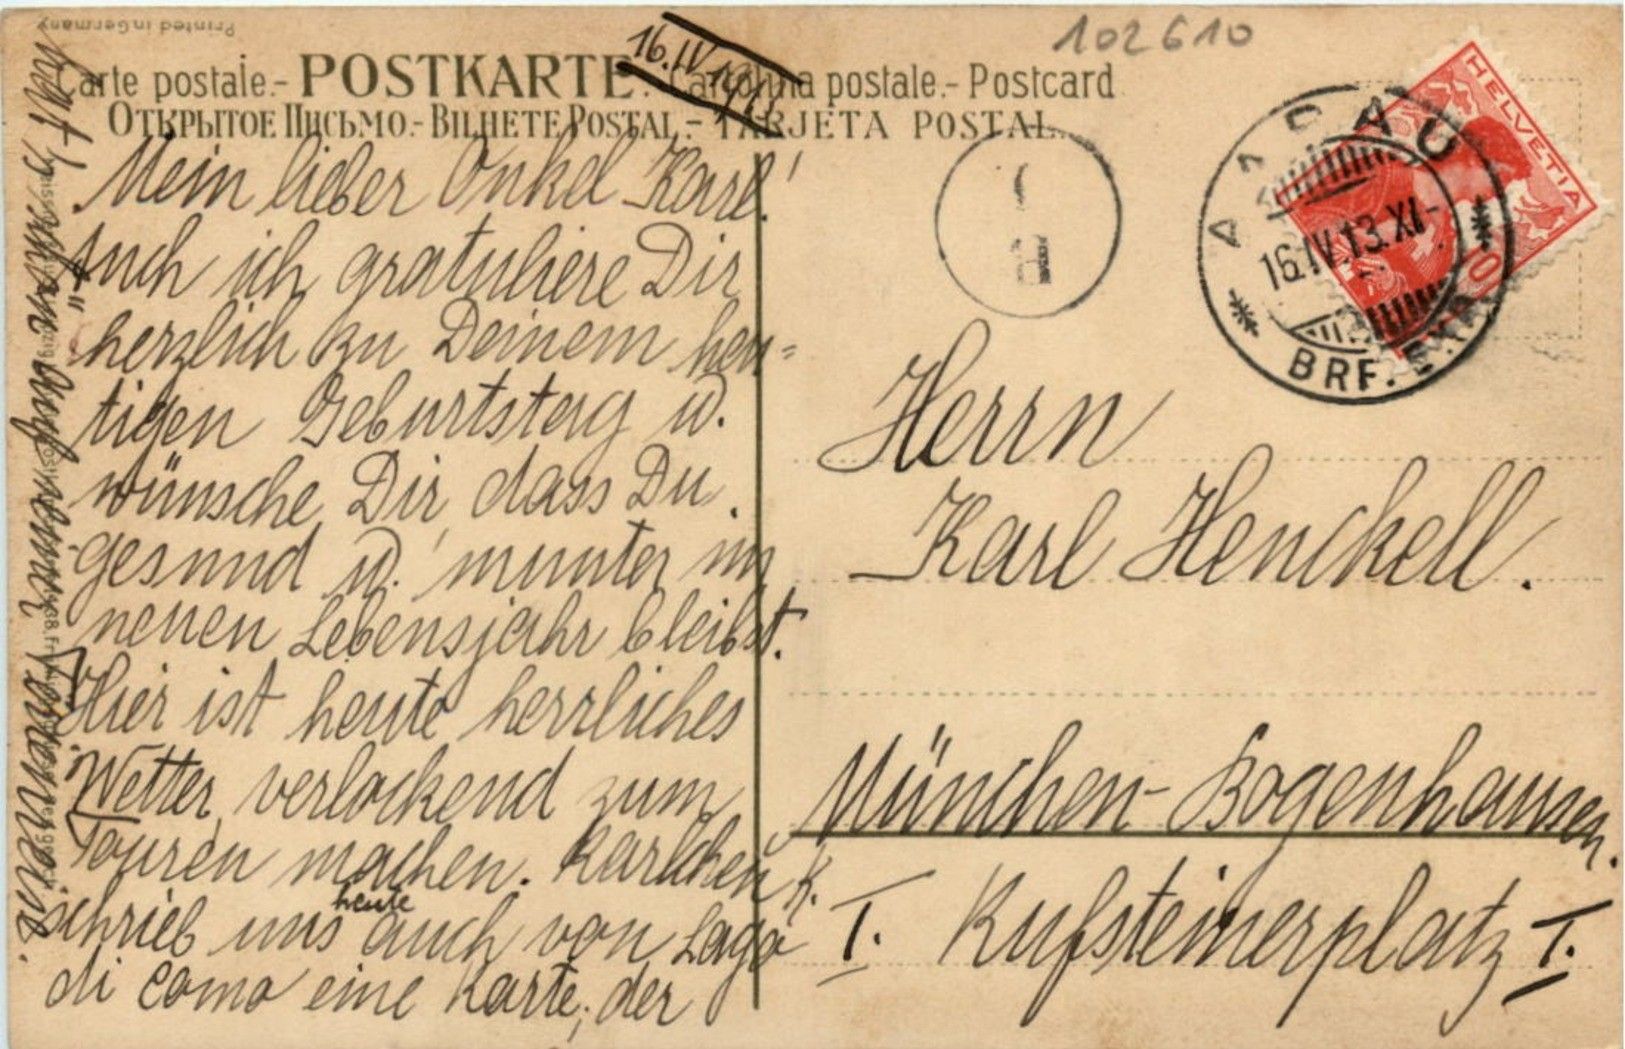 Printed in Germany
102610
16.IV 13.
Carte postale.- POSTKARTE.- Cartolina postale.- Postcard
Открытое Письмо.- Bilhete Postal.- Tarjeta postal.
HELVETIA
10
AARAU
16.IV.13.XI-
BRF. EXP.
1
Mein lieber Onkel Karl!
Auch ich gratuliere Dir
herzlich zu Deinem heu=
tigen Geburtstag u.
wünsche Dir, dass Du
gesund u. munter im
neuen Lebensjahr bleibst.
Hier ist heute herrliches
Wetter, verlockend zum
Touren machen. Karlchen K.
schrieb uns heute auch von Lago
di Como eine Karte, der
Herrn
Karl Henckell.
München-Bogenhausen.
I. Kufsteinerplatz I.